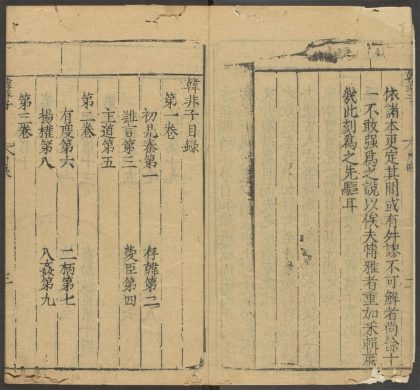 依諸本更定其間或有舛謬不可解者尚餘十
一不敢强爲之說以俟夫博雅者重加采輯焉
幾此刻爲之先驅耳
韓非子目錄
第一卷
初見秦第一 存韓第二
難言第三 愛臣第四
主道第五
第二卷
有度第六 二柄第七
揚權第八 八姦第九
第三卷
韓非子